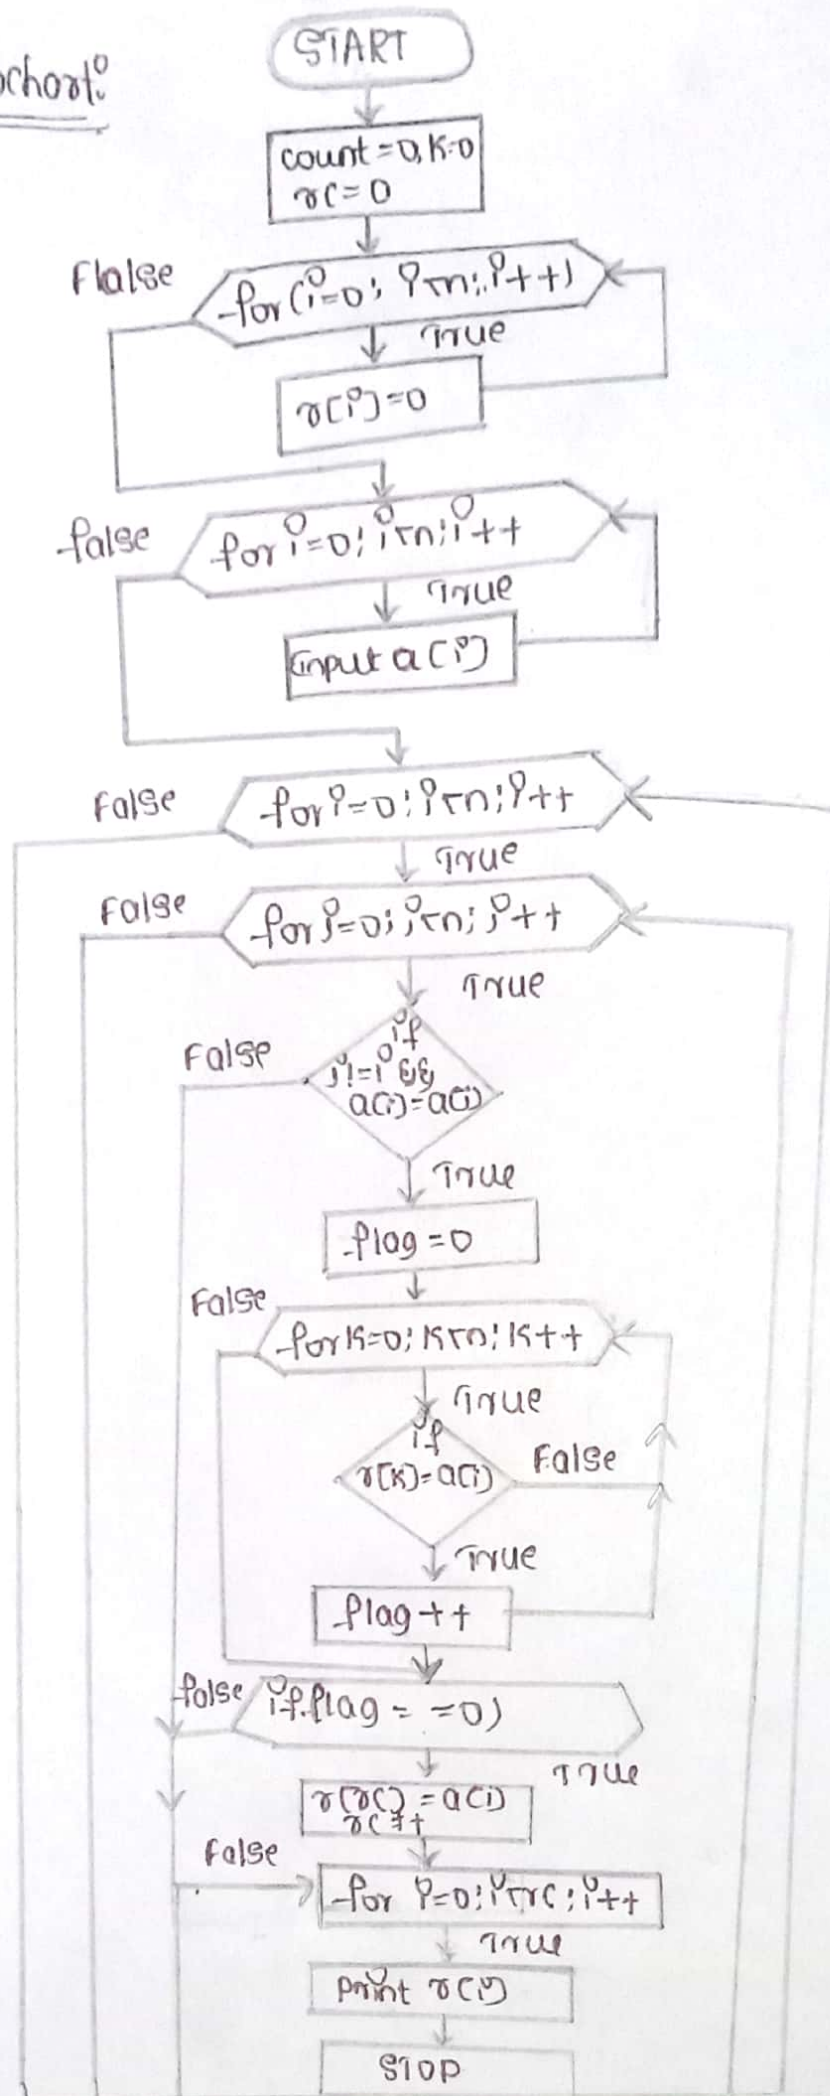 ochart:
START
count = 0, K=0
rc = 0
Flalse
for (i=0; i<n; i++)
True
r[i]=0
false
for i=0; i<n; i++
True
input a[i]
False
for i=0; i<n; i++
True
False
for j=0; j<n; j++
True
if
False
j!=i &&
a[i]=a[j]
True
flag = 0
False
for K=0; K<n; K++
True
if
r[K]=a[i]
False
True
flag++
false
if flag = =0)
True
r[rc] = a[i]
rc++
False
for i=0; i<rc; i++
True
print r[i]
STOP